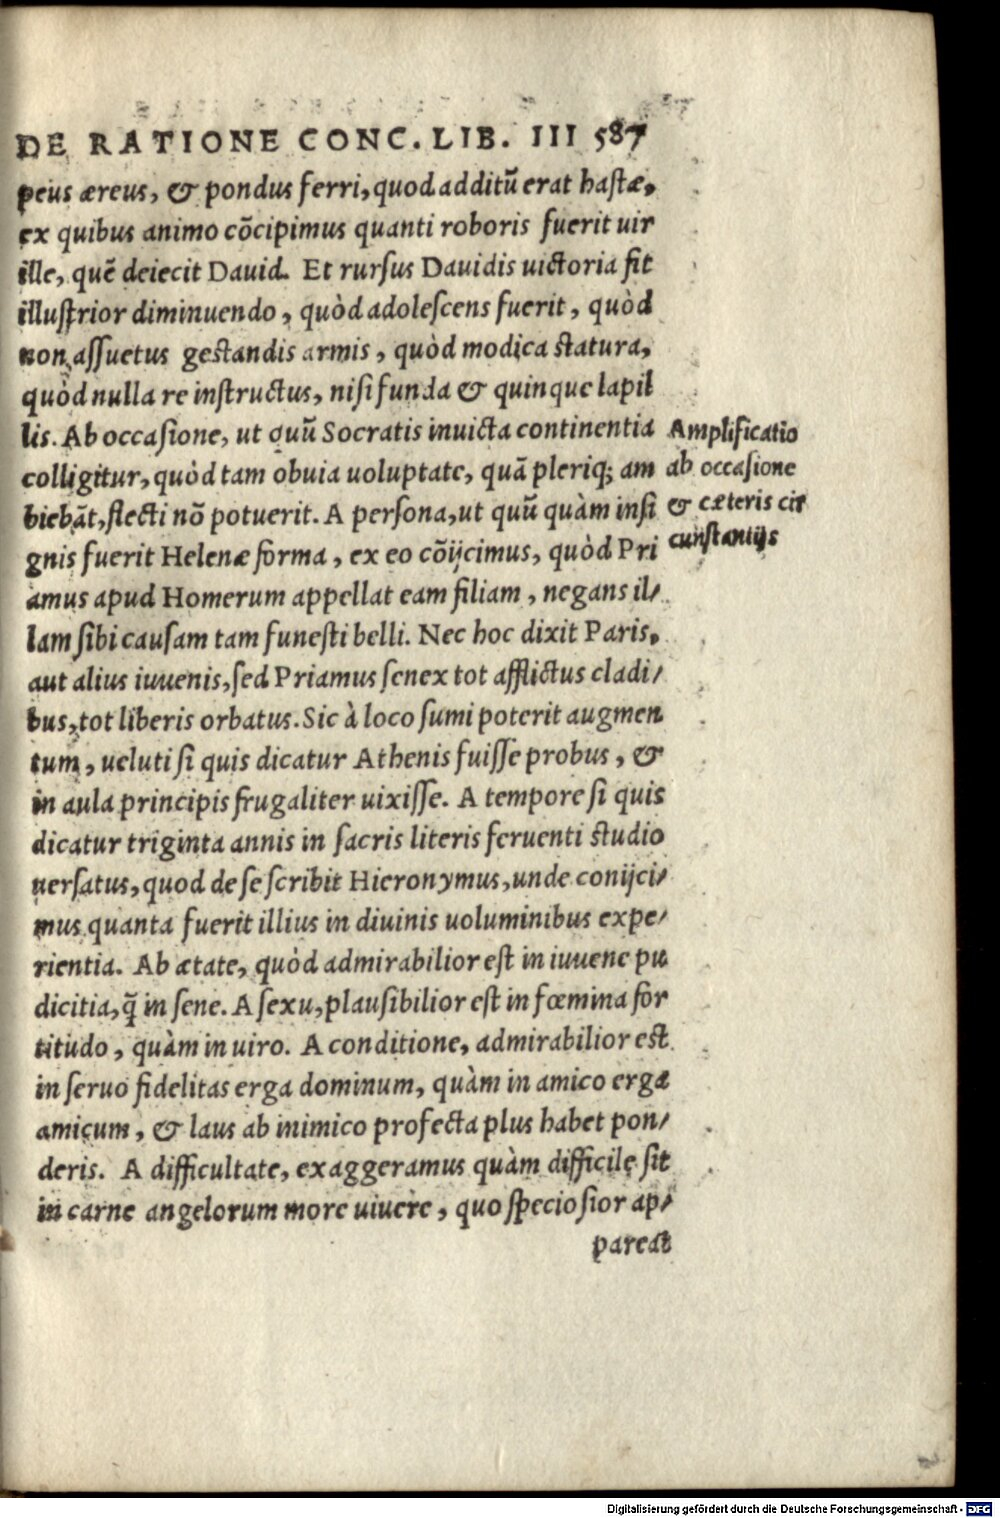 DE RATIONE CONC. LIB. III 587
peus æreus, & pondus ferri, quod additũ erat hastæ,
ex quibus animo cõcipimus quanti roboris fuerit uir
ille, quẽ deiecit Dauid. Et rursus Dauidis uictoria fit
illustrior diminuendo, quòd adolescens fuerit, quòd
non assuetus gestandis armis, quòd modica statura,
quòd nulla re instructus, nisi funda & quinque lapil
lis. Ab occasione, ut quũ Socratis inuicta continentia
colligitur, quòd tam obuia uoluptate, quã pleriq; am
biebãt, flecti nõ potuerit. A persona, ut quũ quàm insi
gnis fuerit Helenæ forma, ex eo cõijcimus, quòd Pri
amus apud Homerum appellat eam filiam, negans il/
lam sibi causam tam funesti belli. Nec hoc dixit Paris,
aut alius iuuenis, sed Priamus senex tot afflictus cladi/
bus, tot liberis orbatus. Sic à loco sumi poterit augmen
tum, ueluti si quis dicatur Athenis fuisse probus, &
in aula principis frugaliter uixisse. A tempore si quis
dicatur triginta annis in sacris literis feruenti studio
uersatus, quod de se scribit Hieronymus, unde conijci/
mus quanta fuerit illius in diuinis uoluminibus expe/
rientia. Ab ætate, quòd admirabilior est in iuuene pu
dicitia, q̃ in sene. A sexu, plausibilior est in fœmina for
titudo, quàm in uiro. A conditione, admirabilior est
in seruo fidelitas erga dominum, quàm in amico erga
amicum, & laus ab inimico profecta plus habet pon/
deris. A difficultate, exaggeramus quàm difficile sit
in carne angelorum more uiuere, quo speciosior ap/
pareat
Amplificatio
ab occasione
& cæteris cir
cunstantijs
Digitalisierung gefördert durch die Deutsche Forschungsgemeinschaft - DFG